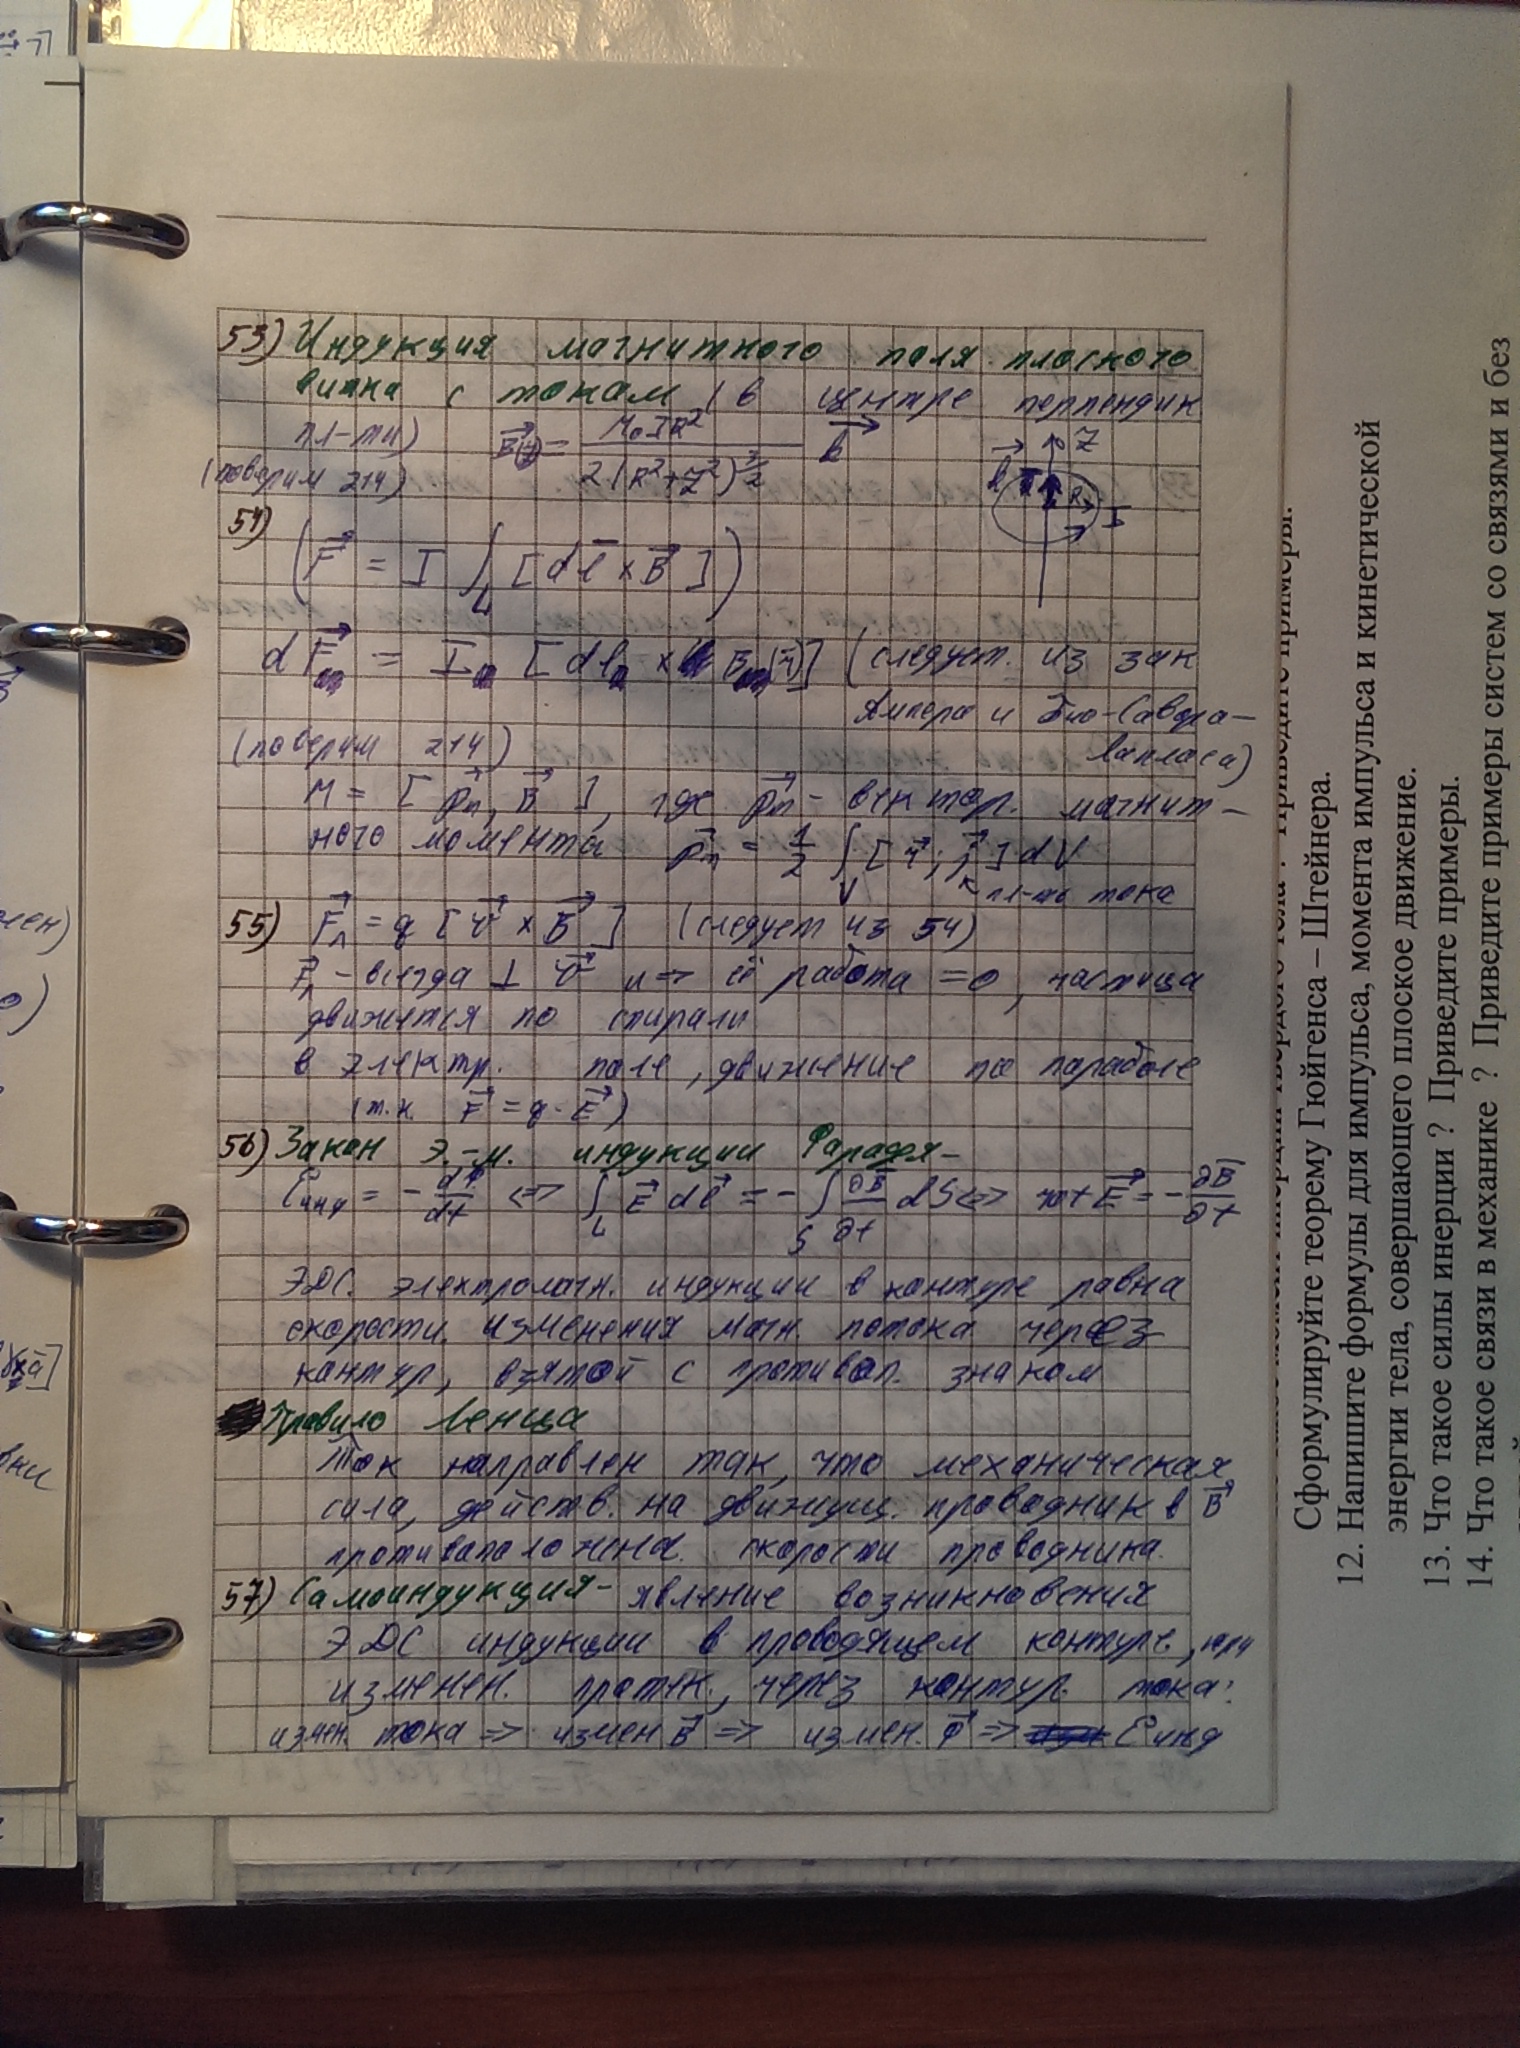 53) Индукция магнитного поля плоского
витка с током (в центре перпендик
пл-ти) B(z) = μ₀IR² / 2(R²+Z²)^(3/2) b
(поверим 214)
Z
b
R
I
54)
(F = I ∫_L [dl × B])
dF = I [dl × B(r)] (следует из зак
Ампера и Био-Савара-
Лапласа)
(поверим 214)
M = [pm, B], где pm - вектор магнит-
ного момента pm = 1/2 ∫_V [r; j] dV
пл-ть тока
55) Fл = q [v × B] (следует из 54)
Fл - всегда ⊥ v и => её работа = 0, частица
движется по спирали
в электр. поле, движение по параболе
(т.к. F = q · E)
56) Закон э.-м. индукции Фарадея -
Ɛинд = - dФ/dt <=> ∫_L E dl = - ∫_S ∂B/∂t dS <=> rot E = - ∂B/∂t
ЭДС электромагн. индукции в контуре равна
скорости изменения магн. потока через
контур, взятой с противоп. знаком
Правило Ленца
Ток направлен так, что механическая
сила, действ. на движущ. проводник в B
противоположена скорости проводника.
57) Самоиндукция - явление возникновения
ЭДС индукции в проводящем контуре, при
изменен. протек. через контур тока:
измен. тока => измен B => измен. Ф => Ɛинд
Сформулируйте теорему Гюйгенса – Штейнера.
12. Напишите формулы для импульса, момента импульса и кинетической
энергии тела, совершающего плоское движение.
13. Что такое силы инерции ? Приведите примеры.
14. Что такое связи в механике ? Приведите примеры систем со связями и без